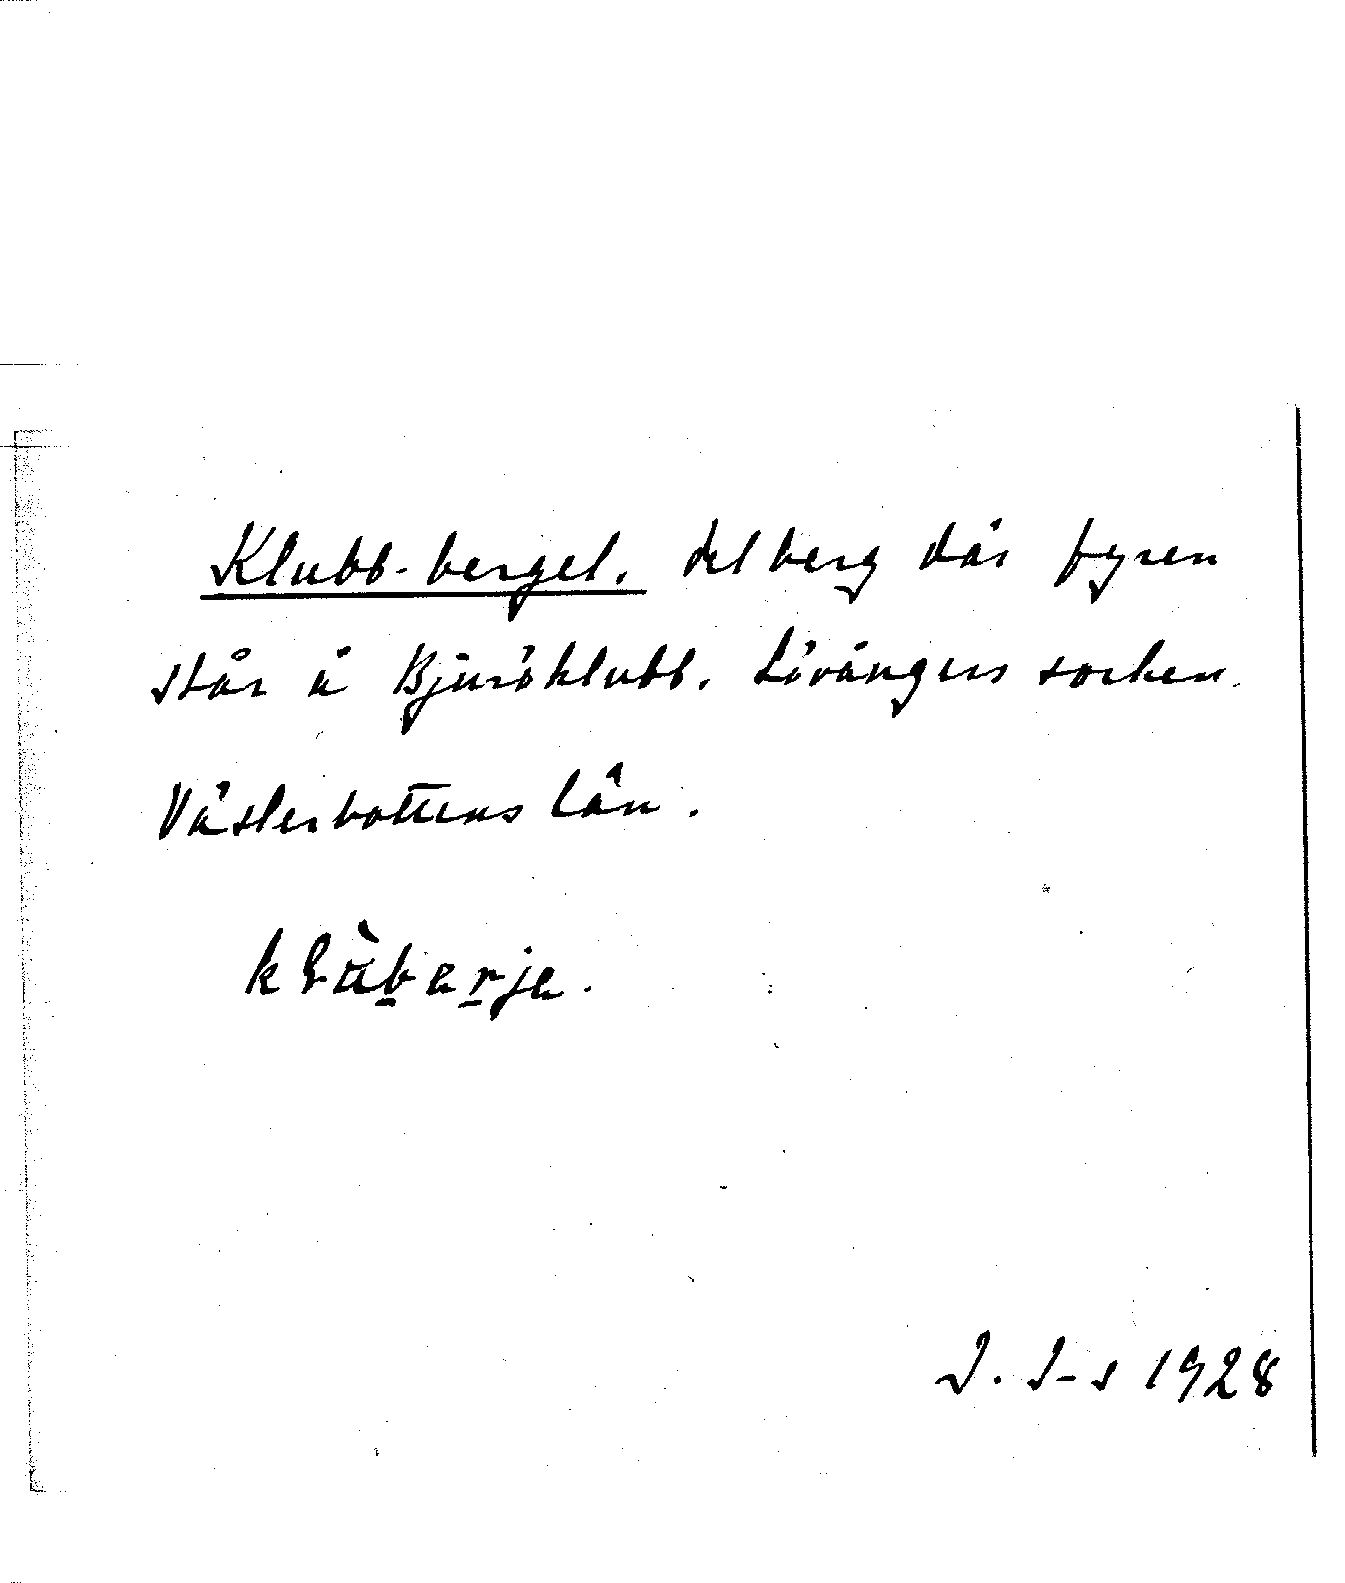 Klubb-berget. det berg där fyren
står å Bjuröklubb. Lövångers socken.
Västerbottens län.
1928